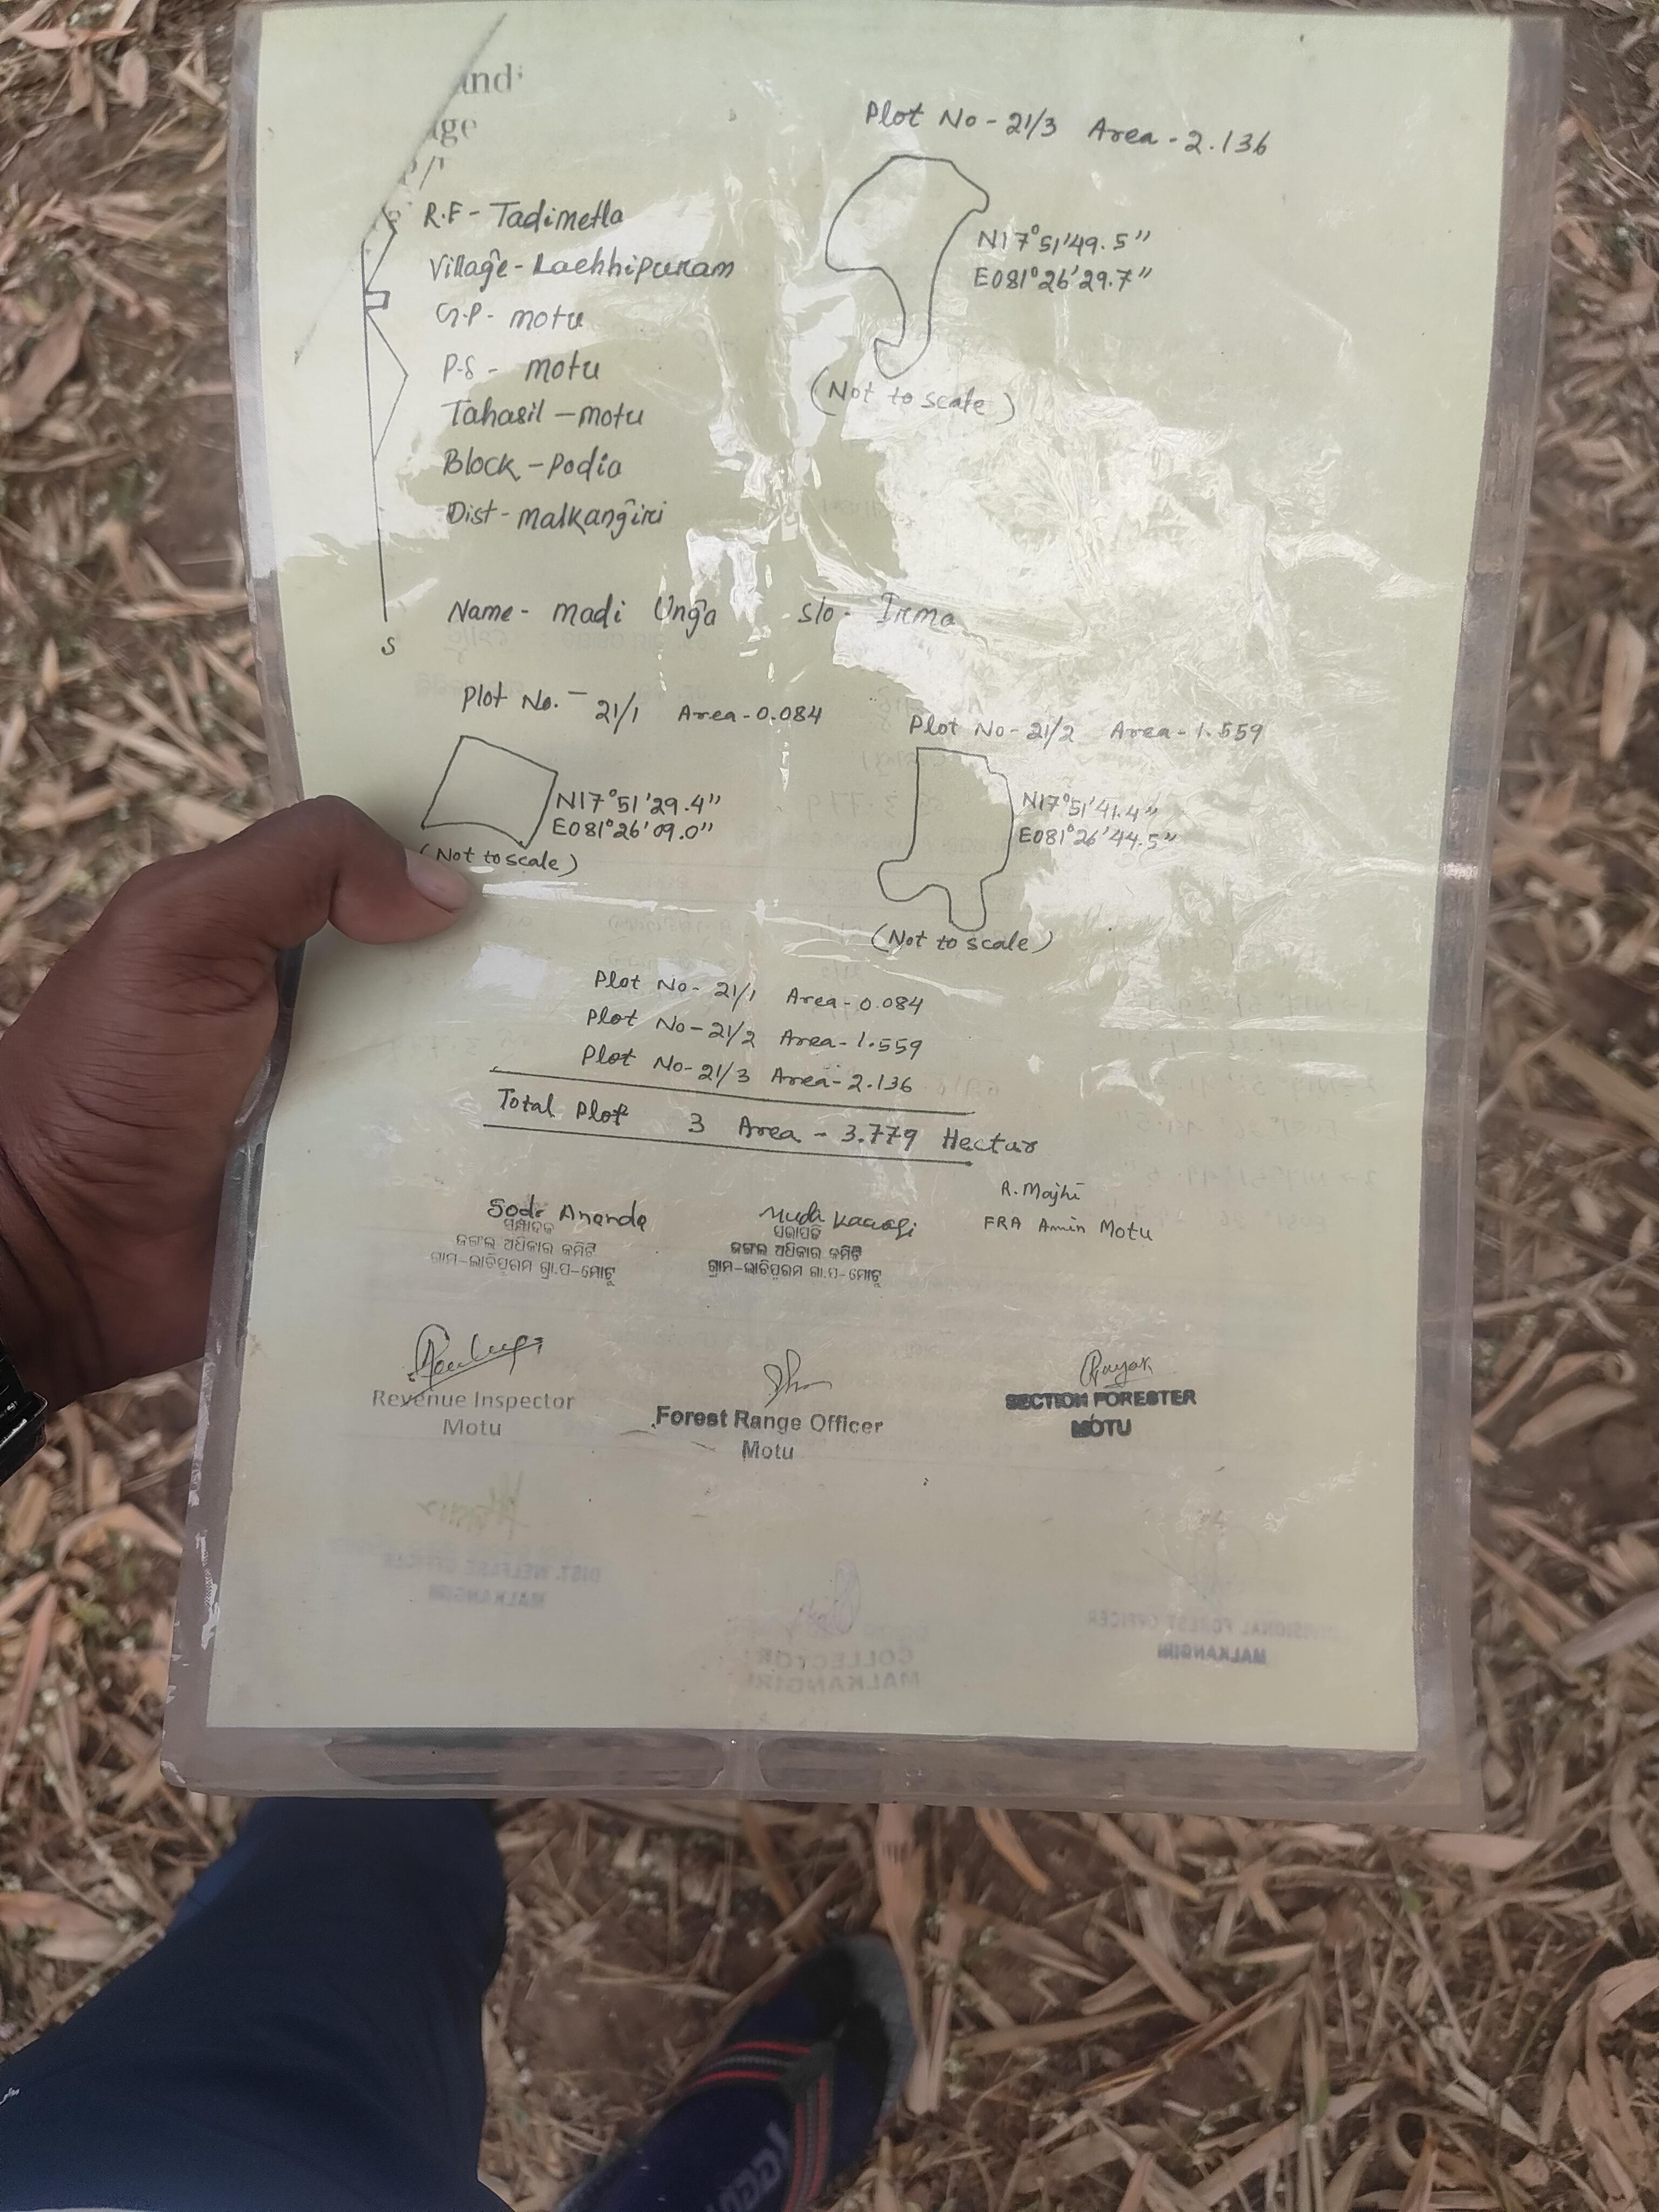 Plot No - 21/3 Area - 2.136
R.F - Tadimetla
Village - Lachhipuram
G.P - motu
P.S - motu
Tahasil - motu
Block - Podia
Dist - malkangiri
N17°51'49.5"
E081°26'29.7"
(Not to scale)
S
Name - madi Unga S/o - Irma
Plot No. - 21/1 Area - 0.084
N17°51'29.4"
E081°26'09.0"
(Not to scale)
Plot No - 21/2 Area - 1.559
N17°51'41.4"
E081°26'44.5"
(Not to scale)
Plot No - 21/1 Area - 0.084
Plot No - 21/2 Area - 1.559
Plot No - 21/3 Area - 2.136
Total Plot 3 Area - 3.779 Hectar
Sodi Ananda
ସମ୍ପାଦକ
ଜଙ୍ଗଲ ଅଧିକାର କମିଟି
ଗ୍ରାମ-ଲାଚିପୁରମ ଗ୍ରା.ପ-ମୋଟୁ
ସଭାପତି
ଜଙ୍ଗଲ ଅଧିକାର କମିଟି
ଗ୍ରାମ-ଲାଚିପୁରମ ଗ୍ରା.ପ-ମୋଟୁ
R. Majhi
FRA Amin Motu
Revenue Inspector
Motu
Forest Range Officer
Motu
SECTION FORESTER
MOTU
DIST. WELFARE OFFICER
MALKANGIRI
COLLECTOR
MALKANGIRI
DIVISIONAL FOREST OFFICER
MALKANGIRI